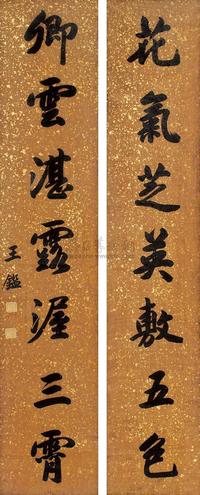 花氣芝英敷五色
卿雲湛露渥三霄
王鑑